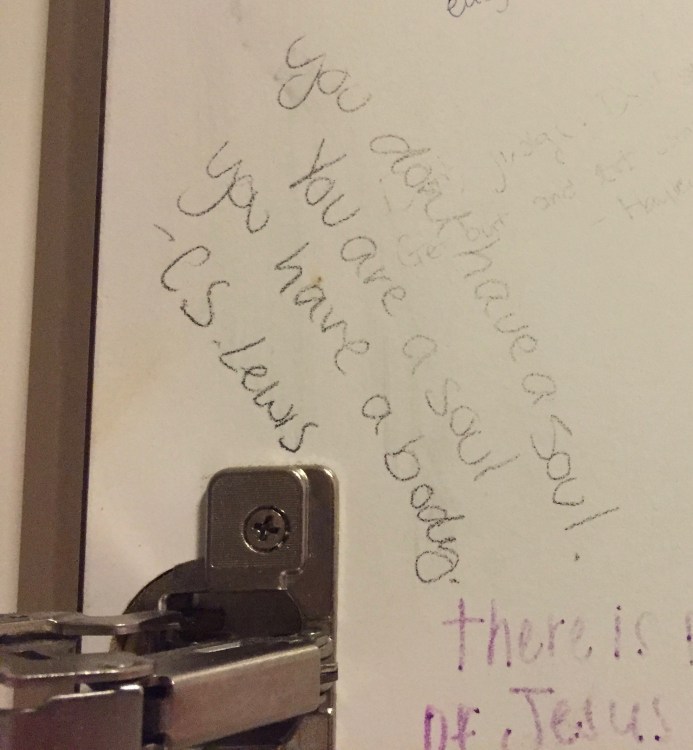 you don't have a soul.
You are a soul
you have a body.
-CS.Lewis
there is
of Jesus